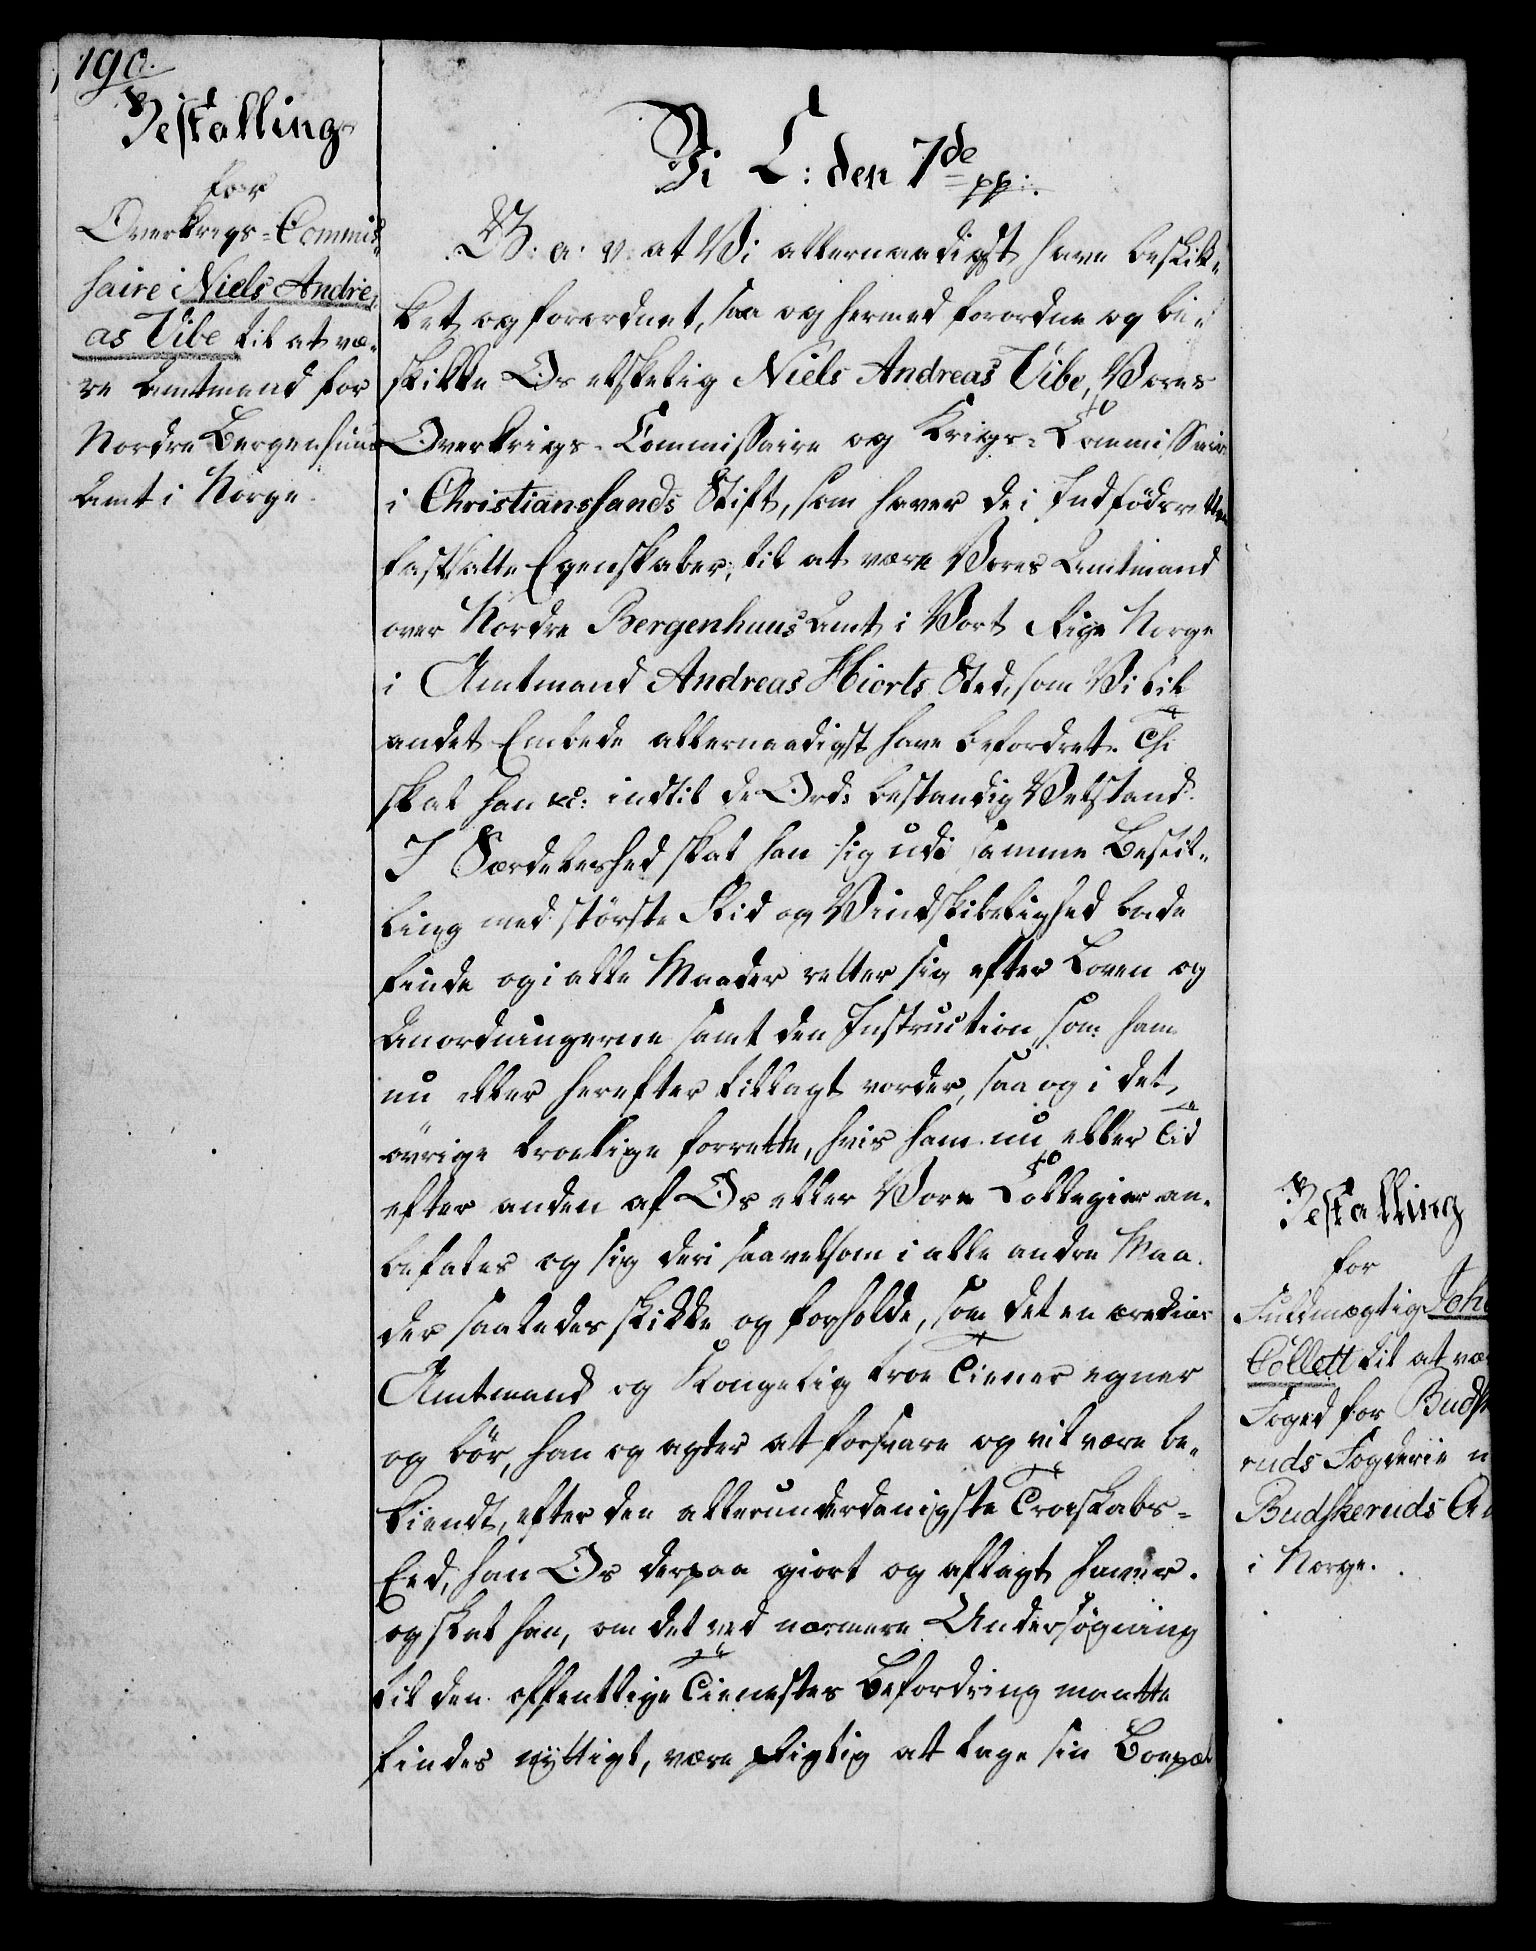 190.
Bestalling
for
Overkrigs-Commis-
saire Niels Andre-
as Vibe til at væ-
re Amtmand for
Nordre Bergenhuus
Amt i Norge.
Vi C: den 7de pp:.
G: a: v: at Vi allernaadigst have beskik-
ket og forordnet, saa og hermed forordne og be-
skikke Os elskelig Niels Andreas Vibe, Vores
Overkrigs-Commissaire og Krigs-Commissair
i Christianssands Stift, som haver de i Indfødsretten
fastsatte Egenskaber, til at være Vores Amtmand
over Nordre Bergenhuus Amt i Vort Rige Norge
i Amtmand Andreas Hiorts Sted, som Vi til
andet Embede allernaadigst have befordret. Thi
skal han &c: indtil de Ord: bestandig Velstand.
I Særdeleshed skal han sig udi samme Bestil-
ling med største Flid og Vindskibelighed lade
finde og i alle Maader retter sig efter Loven og
Anordningerne samt den Instruction, som ham
nu eller herefter tillagt vorder, saa og i det
øvrige troelige forrette, hvis ham nu eller Tid
efter anden af Os eller Vore Collegier an-
befales og sig deri saavelsom i alle andre Maa-
der saaledes skikke og forholde, som det en ærekiær
Amtmand og Kongelig troe Tiener egner
og bør, han og agter at forsvare og vil være be-
kiendt, efter den allerunderdanigste Troskabs-
Eed, han Os derpaa giort og aflagt haver.
og skal han, om det ved nærmere Undersøgning
til den offentlige Tienestes Befordring maatte
findes nyttigt, være pligtig at tage sin Boepæl
Bestalling
for
Fuldmægtig Joh
Collett til at væ
Foged for Budsk
ruds Fogderie
Budskeruds A
i Norge.